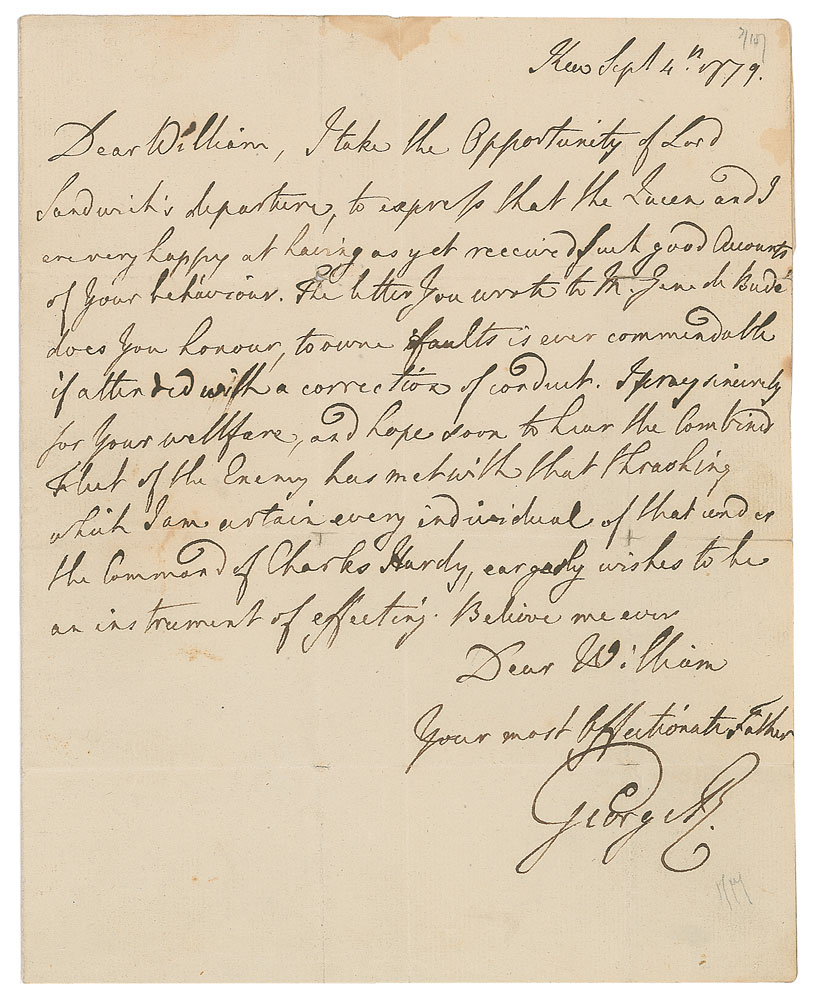 Kew Sept 4.n 1779.
Dear William, I take the Opportunity of Lord
Sandwich's departure, to express that the Queen and I
are very happy at having as yet received such good Accounts
of Your behaviour. The letter You wrote to M. Gen. de Budé
does You honour, to owne faults is ever commendable
if attended with a correction of conduct. I pray sincerely
for Your wellfare, and hope soon to hear the Combined
Fleet of the Enemy has met with that thrashing
which I am certain every individual of that under
the Command of Charles Hardy, eargerly wishes to be
an instrument of effecting. Believe me ever
Dear William
Your most Affectionate Father
George R.